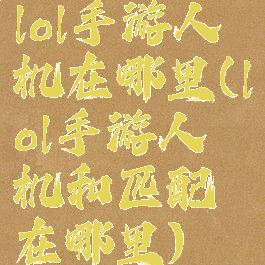 lol手游人
机在哪里(l
ol手游人
机和匹配
在哪里)